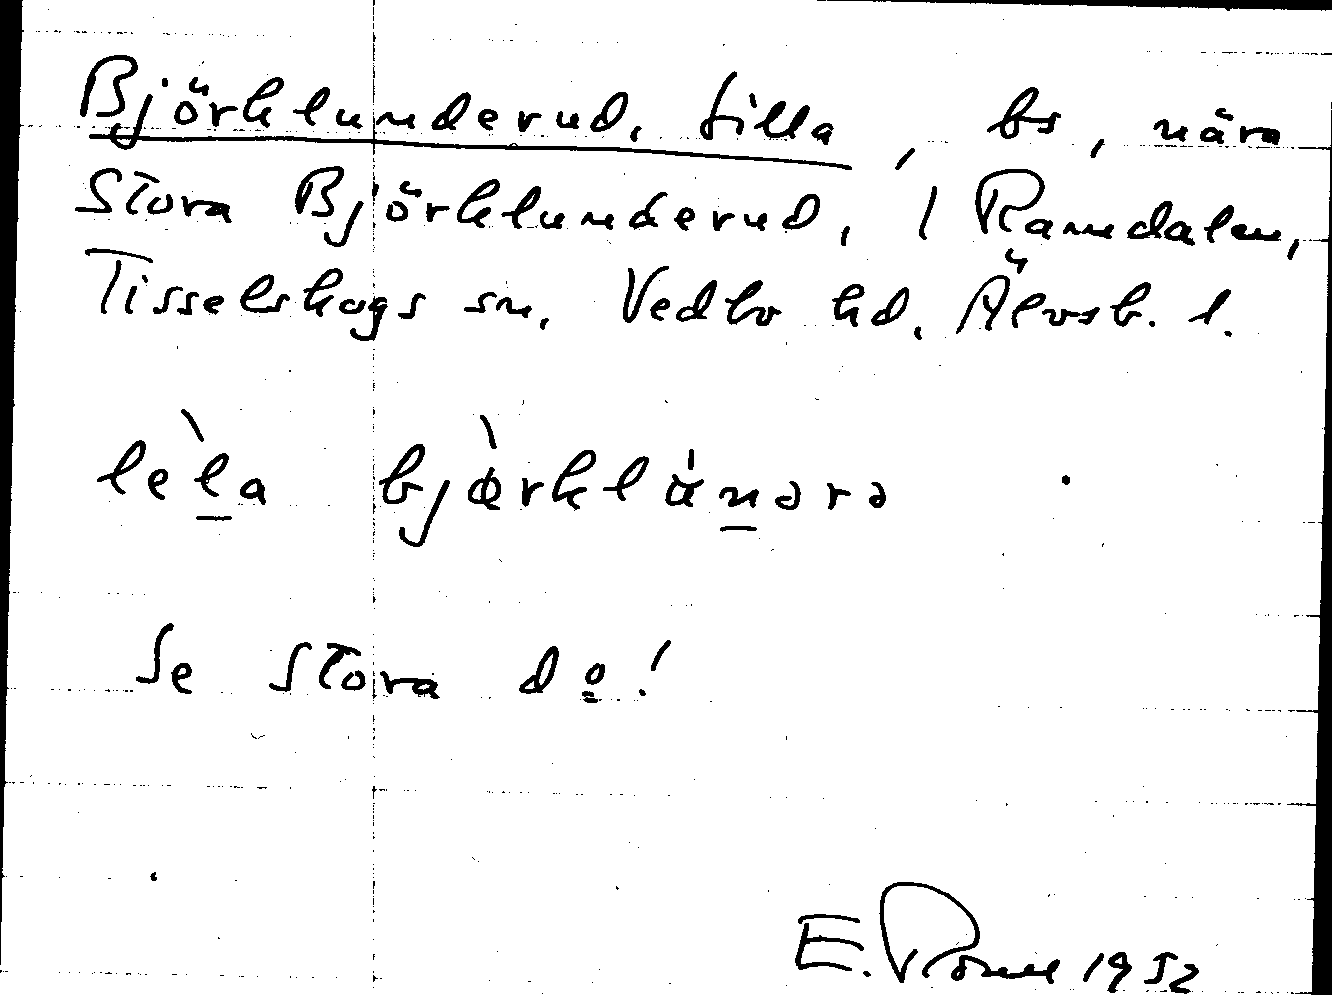 Björklunderud, Lilla, bs, nära
Stora Björklunderud, i Ramdalen,
Tisselskogs sn, Vedbo hd, Älvsb. l.
lèla bjœ̀rklᵾnərə
Se Stora do!
E. 1952